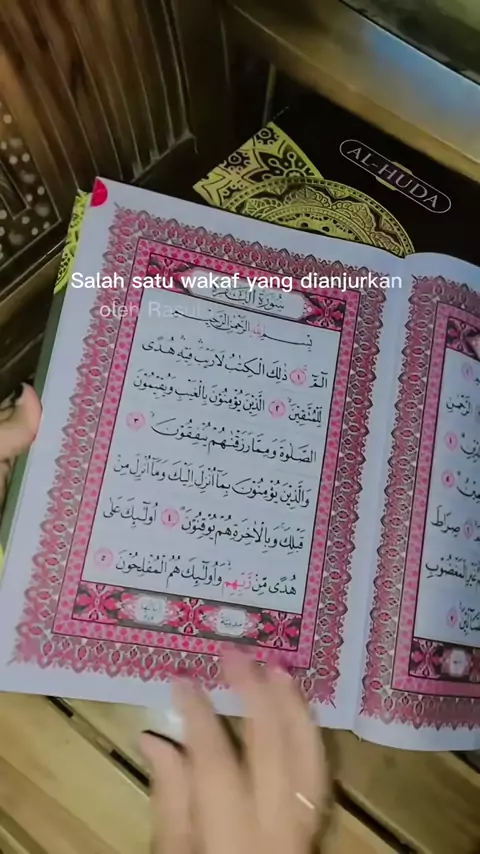 AL-HUDA
Salah satu wakaf yang dianjurkan
oleh Rasul
بِسْمِ اللّٰهِ الرَّحْمٰنِ الرَّحِيْمِ
الۤمّۤ ۝١ ذٰلِكَ الْكِتٰبُ لَا رَيْبَ فِيْهِ هُدًى
لِّلْمُتَّقِيْنَ ۝٢ الَّذِيْنَ يُؤْمِنُوْنَ بِالْغَيْبِ وَيُقِيْمُوْنَ
الصَّلٰوةَ وَمِمَّا رَزَقْنٰهُمْ يُنْفِقُوْنَ ۝٣
وَالَّذِيْنَ يُؤْمِنُوْنَ بِمَآ اُنْزِلَ اِلَيْكَ وَمَآ اُنْزِلَ مِنْ
قَبْلِكَ وَبِالْاٰخِرَةِ هُمْ يُوْقِنُوْنَ ۝٤ اُولٰۤىِٕكَ عَلٰى
هُدًى مِّنْ رَّبِّهِمْ وَاُولٰۤىِٕكَ هُمُ الْمُفْلِحُوْنَ ۝٥
صِرَاطَ
الْمَغْضُوْبِ